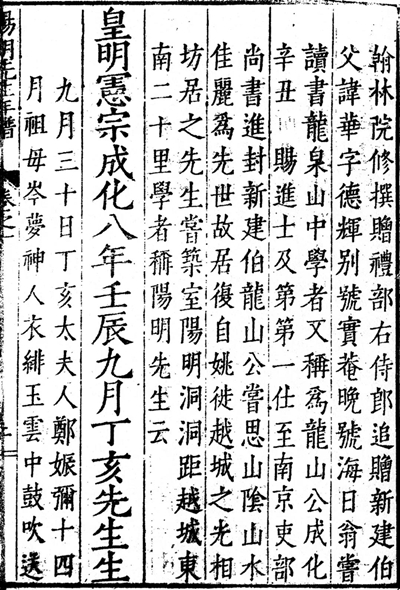 翰林院修撰贈禮部右侍郎追贈新建伯
父諱華字德輝别號實菴晚號海日翁嘗
讀書龍泉山中學者又稱爲龍山公成化
辛丑　賜進士及第第一仕至南京吏部
尚書進封新建伯龍山公嘗思山陰山水
佳麗爲先世故居復自姚徙越城之光相
坊居之先生嘗築室陽明洞洞距越城東
南二十里學者稱陽明先生云
皇明憲宗成化八年壬辰九月丁亥先生生
九月三十日丁亥太夫人鄭娠彌十四
月祖母岑夢神人衣緋玉雲中鼓吹送
陽明先生年譜
卷之一